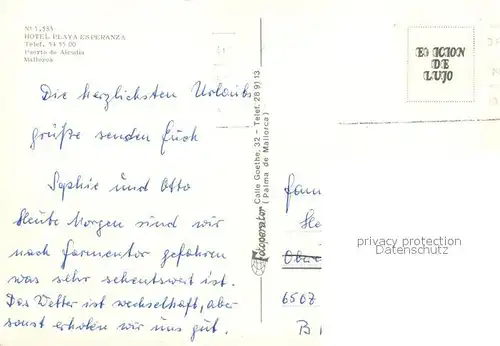 No 1.585
HOTEL PLAYA ESPERANZA
Telef. 54 55 00
Puerto de Alcudia
Mallorca
Die herzlichsten Urlaubs
grüße senden Euch
Sophie und Otto
Heute Morgen sind wir
nach Formentor gefahren
was sehr sehenswert ist.
Das Wetter ist wechselhaft, aber
sonst erholen wir uns gut.
Fotoperator Calle Goethe, 32 - Telef. 28 91 13
(Palma de Mallorca)
EDICION
DE
LUJO
Fam
privacy protection
www.ansichtskarten-center.de
6507
B